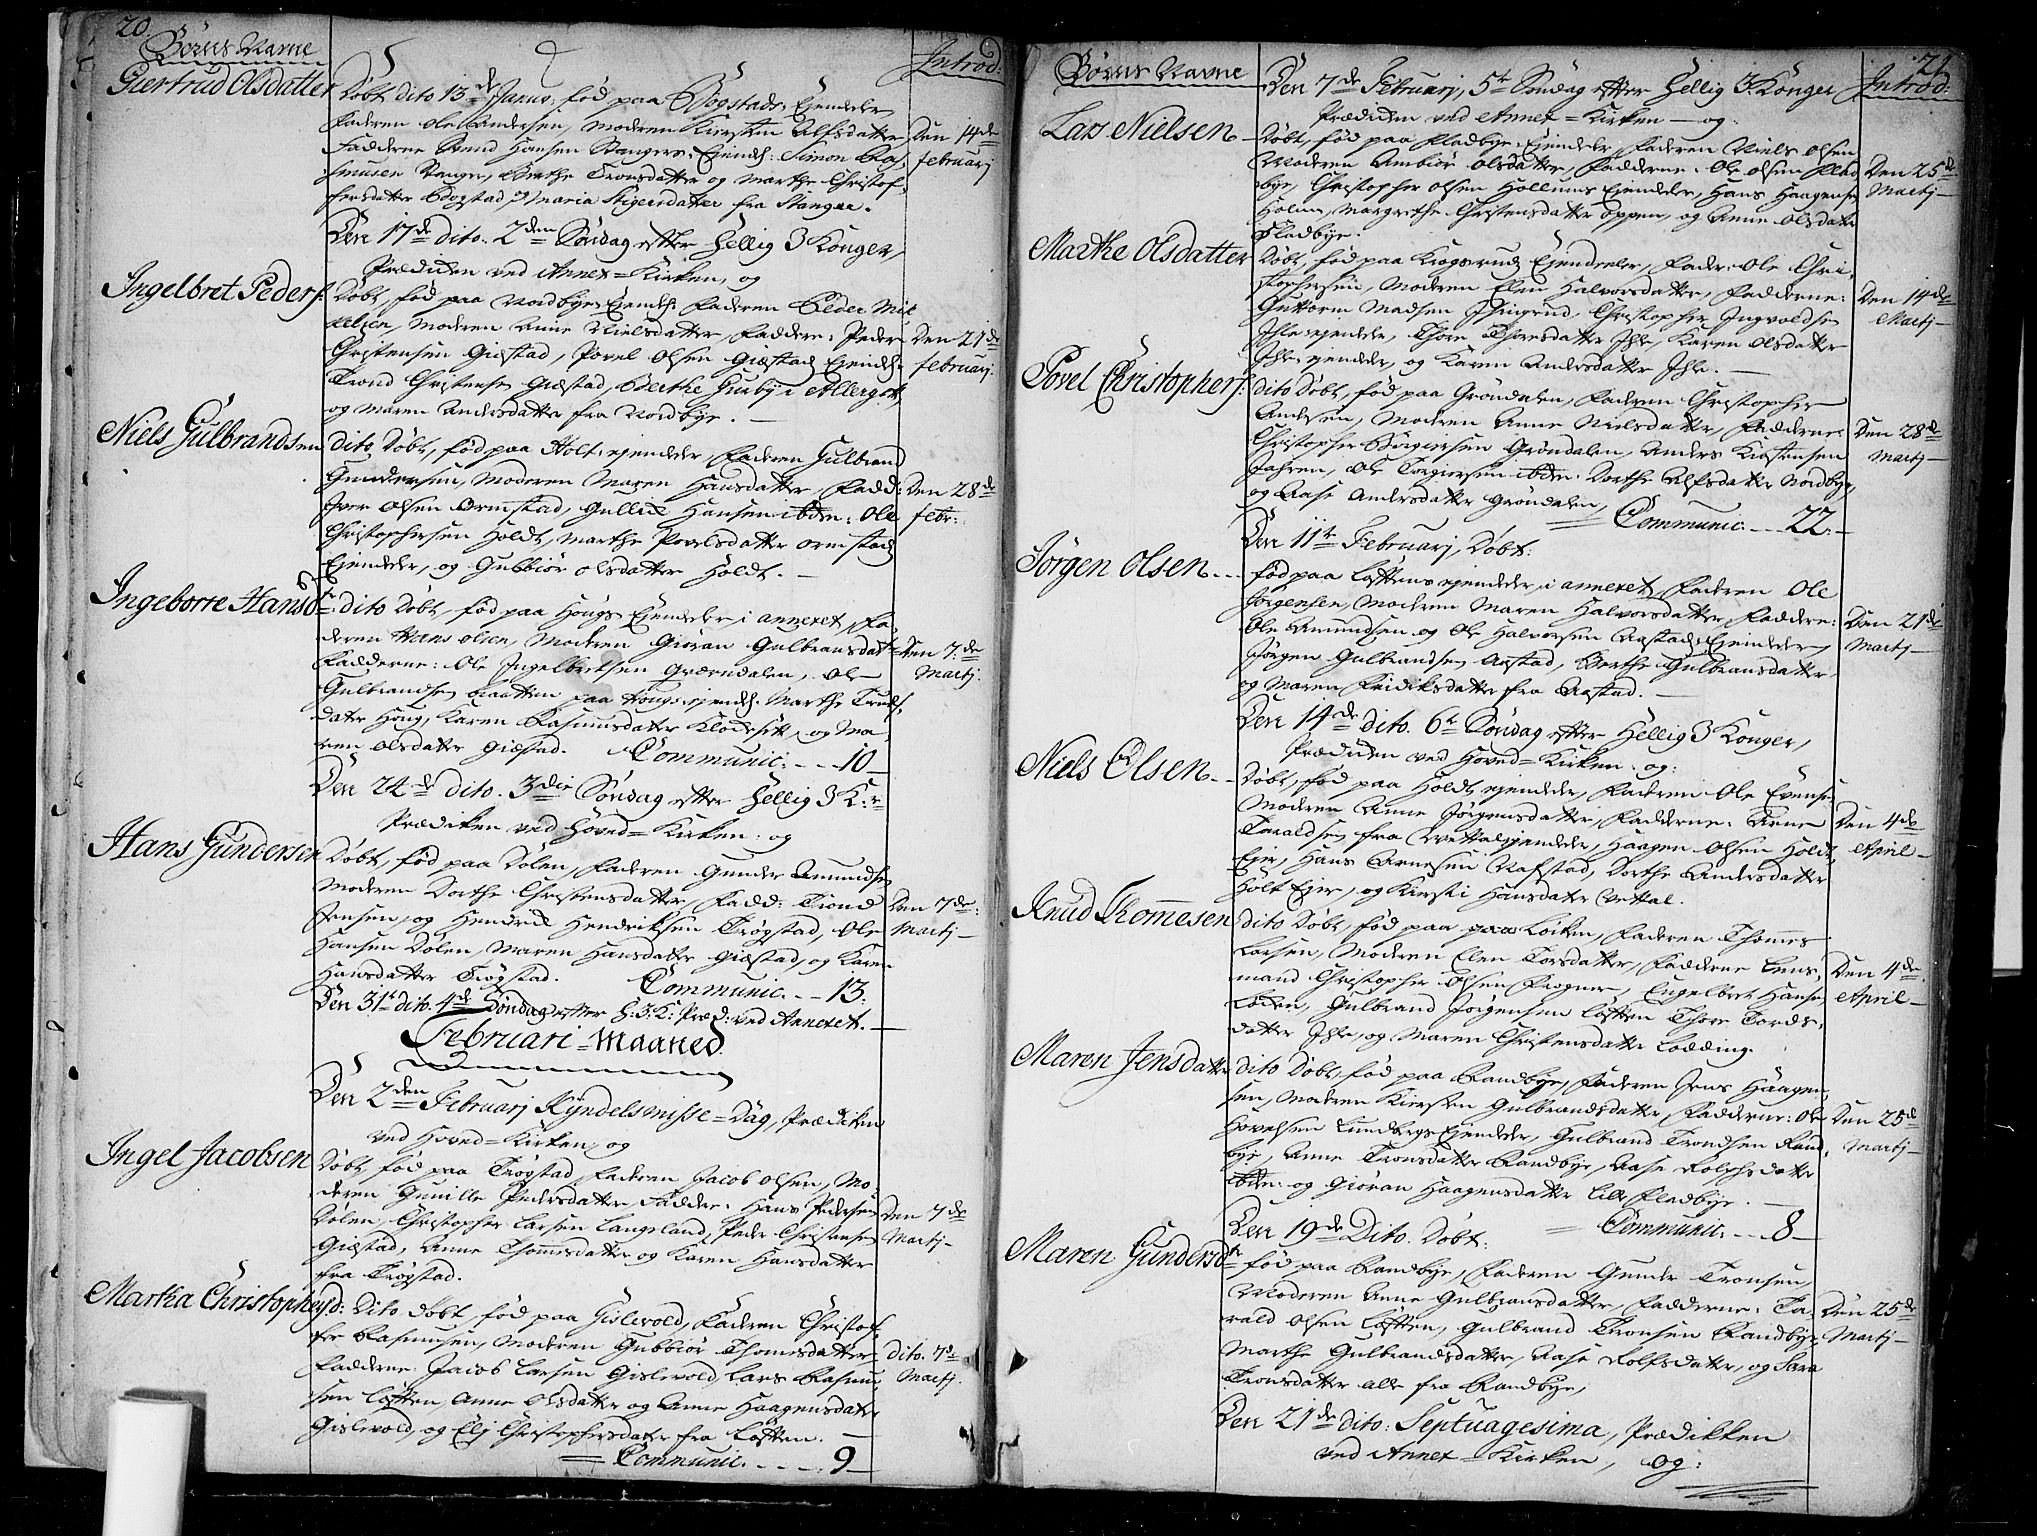 20.
Börns Navne
Introd:
Giertrud Olsdatter
Döbt dito 13de Janu: fød paa Bogstads Ejendele,
Faderen Ole Andersen, Moderen Kirsten Alfsdatter
Fadderne Hansen Stangers Ejend: Simon Ra,
smusen Stanger, Berthe Tronsdatter og Marthe Christof,
fersdatter Bogstad, og Maria Stigersdatter fra Stangær.
Den 14de
Februarj
Den 17de dito. 2den Søndag efter Hellig 3 Konger,
Prædiken ved Annex=Kirken, og
Ingelbret Peders:
Döbt, fød paa Nordbye Ejend: Faderen Peder Mik
kelsen, Moderen Anne Nielsdatter, Faddere: Peder
Christensen Giæstad, Povel Olsen Giæstad Ejend:
Trond Christensen Giæstad, Berthe Huusbye
og Maren Andersdatter fra Nordbye.
Den 21de
Februarj.
Niels Gulbrandsen
Dito Döbt, fød paa Holt ejendele, Faderen Gulbrand
Gundersen, Moderen Maren Hansdatter, Fadd:
Iver Olsen Ormstad, Gullik Hansen ibdm: Ole
Christophersen Holdt, Marthe Povelsdatter Ormstad
Ejendele, og Gubbiør Olsdatter Holdt.
Den 28de
Febr:
Ingeborre Hansdr:
Dito Döbt, fød paa Hougs Ejendele i annexet, Fa,
deren Hans Olsen, Moderen Giøran Gulbransdatr
Fadderne: Ole Ingelbretsen Qværndalen, Ole
Gulbrandsen Braatten paa Hougs ejend: Marthe Truls,
dater Houg, Karen Rasmusdater Klodesett, og Ma,
ren Olsdatter Giæstad. Communic: - - - 10
Den 7de
Martj.
Den 24de dito. 3die Søndag efter Hellig 3 K:r
Prædiken ved Hoved=Kirken: og
Hans Gundersen
Döbt, fød paa Dølen, Faderen Gunder Amundsen
Moderen Dorthe Christensdatter, Fadd: Trond
Jensen, og Hendrik Hendriksen Trøgstad, Ole
Hansen Dølen, Maren Hansdatter Giæstad, og Karen
Hansdatter Trøgstad. Communic. - - 13.
Den 7de
Martj
Den 31te dito. 4de Søndag efter H: 3. K: Præd: ved Annexet.
Februari=Maaned.
Den 2den Februarj Kyndelsmisse=Dag, Prædiken
ved Hoved=Kirken, og
Ingel Jacobsen
Döbt, fød paa Trøgstad, Faderen Jacob Olsen, Mo,
deren Gunille Pedersdatter, Faddere: Hans Pedersen
Dølen, Christopher Larsen Langeland, Peder Christensen
Giæstad, Anne Thomesdatter og Karen Hansdatter
fra Trøgstad.
Den 7de
Martj
Martha Christophersd:
Dito döbt, fød paa Gislevold, Faderen Christof,
fer Rasmusen, Moderen Gubbiør Thomesdatter
Fadderne: Jacob Larsen Gislevold, Lars Rasmu,
sen Løften, Anne Olsdatter og Anne Haagensdater
Gislevold, og Elj Christophersdater fra Løften.
Communic. - - - - 9
dito. 7de
Martj.
21
Börns Navne
Introd:
Den 7de Februarj, 5te Søndag efter Hellig 3. Konger
Prædiken ved Annex=Kirken - og:
Lars Nielsen
Döbt, fød paa Fladbye Ejendele, Faderen Niels Olsen
Moderen Ambiør Olsdatter, Fadderne: Ole Olsen Flad
bye, Christopher Olsen Hollums Ejendele, Hans Haagensen
Holm, Margrethe Christensdatter Oppen, og Anne Olsdater
Fladbye.
Den 25de
Martj
Marthe Olsdatter
Döbt, fød paa Krogsruds Ejendeele, Fader: Ole Chri,
stophersen, Moderen Elen Halvorsdatter, Fadderne:
Guttorm Madsen, Christopher Ingvoldsen
Ihle ejendele, Thore Thoresdatter Ihle, Karen Olsdatter
Ihle ejendele, og Karen Andersdatter Ihle.
Den 14de
Martj
Povel Christophers:
Dito Döbt, fød paa Grøndalen, Faderen Christopher
Andersen, Moderen Anne Nielsdatter, Fadderne:
Christopher Børgersen Grøndalen, Anders Kirstensen
Jahren, Ole Torgiersen ibdm: Dorthe Alfsdatter Nordbye,
og Aase Andersdatter Grøndalen,
Communic. - - 22.
Den 28de
Martj
Den 11te Februarj, Döbt:
Jörgen Olsen
fød paa Løftens ejendele, i annexet, Faderen Ole
Jørgensen, Moderen Maren Halvorsdatter, Faddere:
Ole Amundsen og Ole Halvorsen Aastads Ejendele,
Jørgen Gulbrandsen Aastad, Berthe Gulbransdatter
og Maren Fridiksdatter fra Aastad.
Den 21de
Martj
Den 14de dito. 6te Søndag efter Hellig 3 Konger,
Prædiken ved Hoved=Kirken. og:
Niels Olsen
Döbt, fød paa Holdt ejendele, Faderen Ole Evensen
Moderen Anne Jørgensdatter, Fadderne: Arne
Taraldsen fra Vettalsejendele, Haagen Olsen Holdt
Ejer, Hans Arnesen Rafstad, Dorthe Andersdatter
Holt Ejer, og Kirsti Hansdater Vettal.
Den 4de
April
Knud Thomesen
Dito Döbt, fød paa paa Løiten, Faderen Thomes
Larsen, Moderen Elen Torsdatter, Fadderne Lens,
mand Christopher Olsen Frogner, Engelbret Hansen
Løken, Gulbrand Jørgensen Løften Thore Tords,
datter Ihle, og Maren Christensdatter Lødding.
Den 4de
April
Maren Jensdatter
Dito Döbt, fød paa Randbye, Faderen Jens Haagen,
sen, Moderen Kiersten Gulbrandsdatter, Fadderne: Ole
Hovelsen Lundbergs Ejendele, Gulbrand Trondsen Rand,
bye, Anne Tronsdatter Randbye, Aase Rolphsdatter
ibdm: og Giøran Haagensdatter Lille Fladbye.
Den 25de
Martj
Den 19de Dito. Döbt: Communic. - - 8
Maren Gundersdr
fød paa Randbye, Faderen Gunder Tronsen,
Moderen Anne Gulbransdatter, Fadderne: Ta,
rald Olsen Løften, Gulbrand Tronsen Randbye,
Marthe Gulbrandsdatter, Aase Rolfsdater, og Sara
Tronsdatter alle fra Randbye,
Den 25de
Martj
Den 21de dito: Septuagesima, Prædikken
ved Annex=Kirken, og: